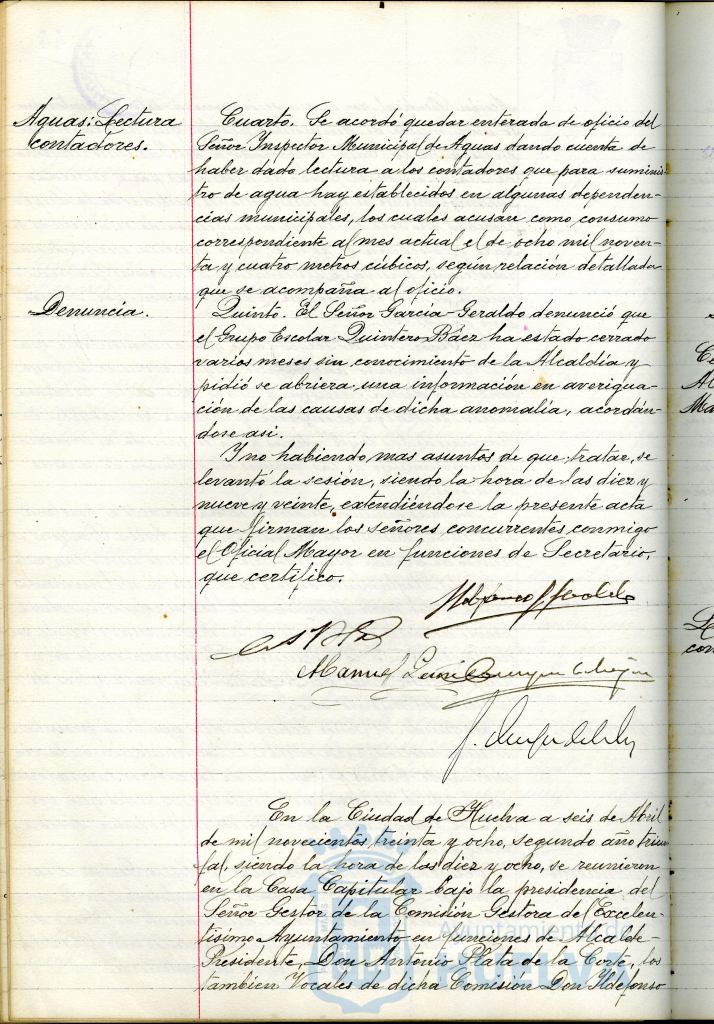 Aguas: Lectura
contadores.
Cuarto. Se acordó quedar enterada de oficio del
Señor Inspector Municipal de Aguas dando cuenta de
haber dado lectura a los contadores que para suminis-
tro de agua hay establecidos en algunas dependen-
cias municipales, los cuales acusan como consumo
correspondiente al mes actual el de ocho mil noven-
ta y cuatro metros cúbicos, según relación detallada
que se acompaña al oficio.
Denuncia.
Quinto. El Señor Garcia-Geraldo denunció que
el Grupo Escolar Quintero Báez ha estado cerrado
varios meses sin conocimiento de la Alcaldía y
pidió se abriera una información en averigua-
ción de las causas de dicha anomalía, acordán-
dose asi.
Y no habiendo mas asuntos de que tratar, se
levantó la sesión, siendo la hora de las diez y
nueve y veinte, extendiéndose la presente acta
que firman los señores concurrentes conmigo
el Oficial Mayor en funciones de Secretario,
que certifico.
Manuel
En la Ciudad de Huelva a seis de Abril
de mil novecientos treinta y ocho, segundo año triun-
fal, siendo la hora de las diez y ocho, se reunieron
en la Casa Capitular bajo la presidencia del
Señor Gestor de la Comisión Gestora del Excelen-
tísimo Ayuntamiento en funciones de Alcalde-
Presidente, Don Antonio Plata de la Corte, los
tambien Vocales de dicha Comisión Don Ildefonso
Ayuntamiento de
Huelva